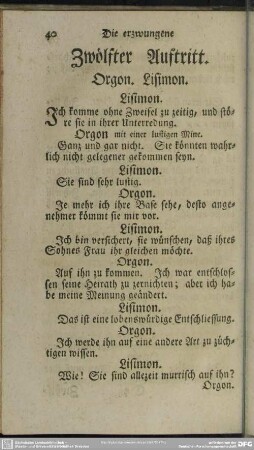 40 Die erzwungene
Zwölfter Auftritt.
Orgon. Lisimon.
Lisimon.
Ich komme ohne Zweifel zu zeitig, und stö-
re sie in ihrer Unterredung.
Orgon mit einer lustigen Mine.
Ganz und gar nicht. Sie könnten wahr-
lich nicht gelegener gekommen seyn.
Lisimon.
Sie sind sehr lustig.
Orgon.
Je mehr ich ihre Base sehe, desto ange-
nehmer kömmt sie mir vor.
Lisimon.
Ich bin versichert, sie wünschen, daß ihres
Sohnes Frau ihr gleichen möchte.
Orgon.
Auf ihn zu kommen. Ich war entschlos-
sen seine Heirath zu zernichten; aber ich ha-
be meine Meinung geändert.
Lisimon.
Das ist eine lobenswürdige Entschliessung.
Orgon.
Ich werde ihn auf eine andere Art zu züch-
tigen wissen.
Lisimon.
Wie! Sie sind allezeit murrisch auf ihn?
Orgon.
DFG